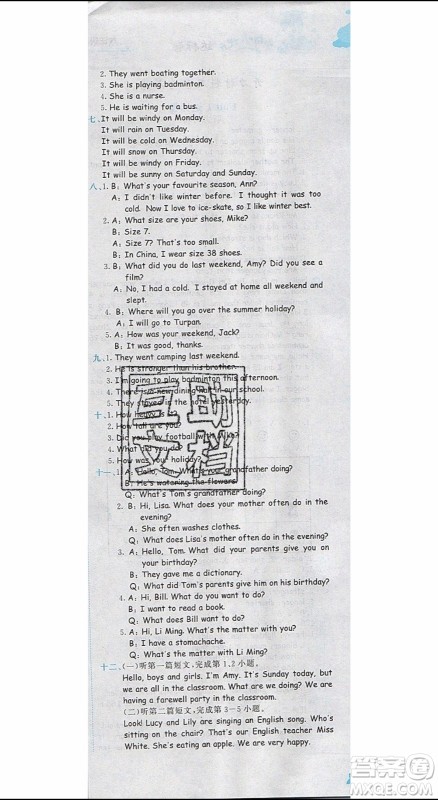 2. They went boating together.
3. She is playing badminton.
4. She is a nurse.
5. He is waiting for a bus.
七、It will be windy on Monday.
It will rain on Tuesday.
It will be cold on Wednesday.
It will snow on Thursday.
It will be windy on Friday.
It will be sunny on Saturday and Sunday.
八、1. B: What's your favourite season, Ann?
A: I didn't like winter before. I thought it was too
cold. Now I love to ice-skate, so I like winter best.
2. A: What size are your shoes, Mike?
B: Size 7.
A: Size 7? That's too small.
B: In China, I wear size 38 shoes.
3. B: What did you do last weekend, Amy? Did you see a
film?
A: No, I had a cold. I stayed at home all weekend and
slept.
4. B: Where will you go over the summer holiday?
A: I will go to Turpan.
5. A: How was your weekend, Jack?
B: It was good, thanks.
九、1. They went camping last weekend.
2. He is stronger than his brother.
3. I'm going to play badminton this afternoon.
4. There is no dining hall in our school.
5. They stayed in the hotel yesterday.
十、1. How heavy is it?
2. How tall are you?
3. Did you play football with Mike?
4. What did you do?
5. How was your holiday?
十一、1. A: Hello, Tom. What's your grandfather doing?
B: He's watering the flowers.
Q: What's Tom's grandfather doing?
2. B: Hi, Lisa. What does your mother often do in the
evening?
A: She often washes clothes.
Q: What does Lisa's mother often do in the evening?
3. A: Hello, Tom. What did your parents give you on
your birthday?
B: They gave me a dictionary.
Q: What did Tom's parents give him on his birthday?
4. A: Hi, Bill. What do you want to do?
B: I want to read a book.
Q: What does Bill want to do?
5. A: Hi, Li Ming. What's the matter with you?
Q: What's the matter with Li Ming?
十二、(一)听第一篇短文,完成第1、2小题。
Hello, boys and girls. I'm Amy. It's Sunday today, but
we are all in the classroom. What are we doing? We are
having a farewell party in the classroom.
(二)听第二篇短文,完成第3-5小题。
Look! Lucy and Lily are singing an English song. Who's
sitting on the chair? That's our English teacher Miss
White. She's eating an apple. We are very happy.
作业帮
MXQE.COM